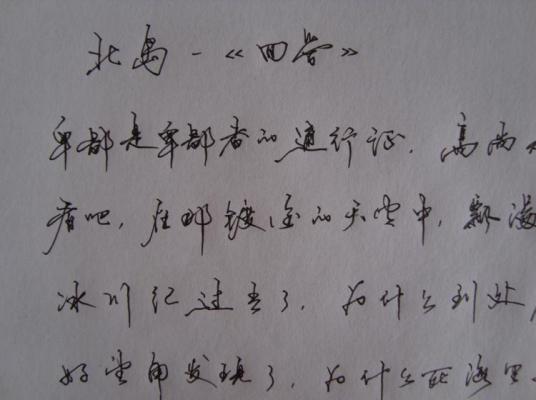 北岛-《回答》
卑鄙是卑鄙者的通行证，高尚
看吧，在那镀金的天空中，飘满
冰川纪过去了，为什么到处
好望角发现了，为什么死海里